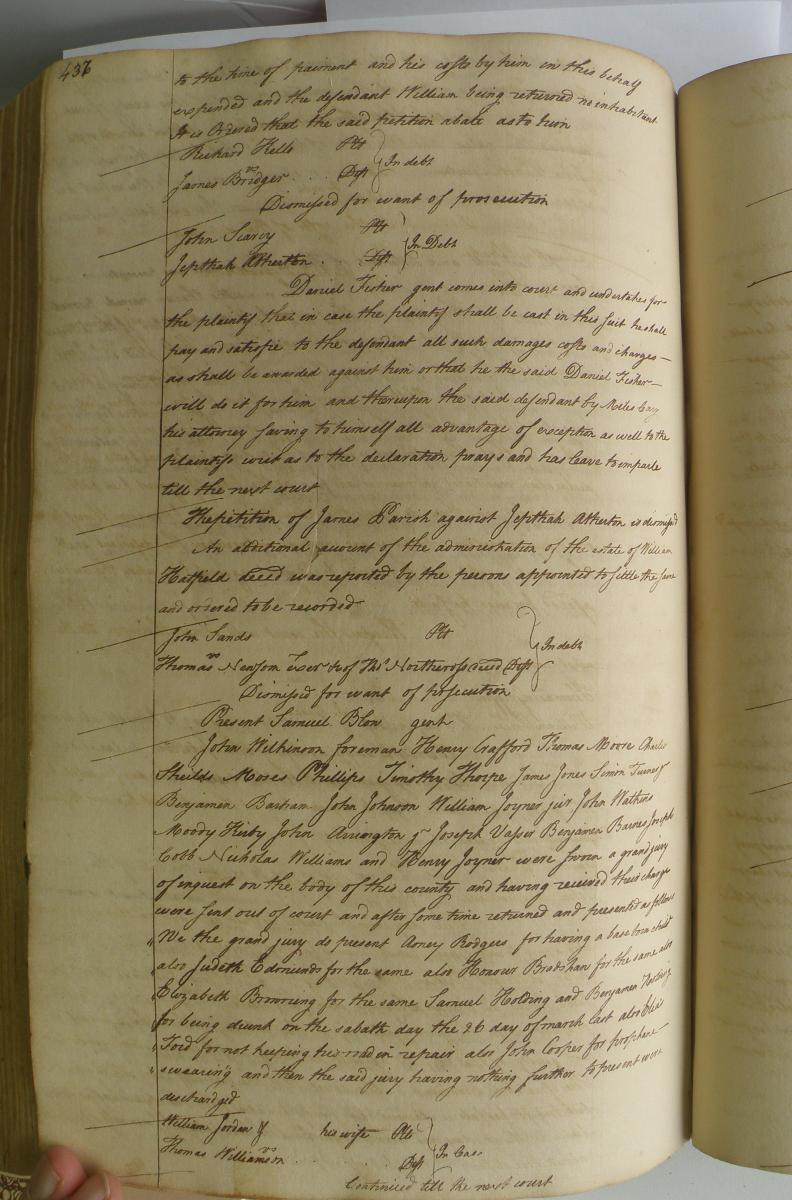 436
to the time of paiment and his costs by him in this behalf
expended and the defendant William being returned no inhabitant
It is Ordered that the said petition abate as to him
Richard Kello Plt
vs } In debt
James Bridger . . . Deft
Dismissed for want of prosecution
John Scarvy Plt
} In Debt
Jepthah Atherton . . Deft
Daniel Fisher gent comes into court and undertakes for
the plaintif that in case the plaintif shall be cast in this suit he shall
pay and satisfie to the defendant all such damages costs and charges
as shall be awarded against him or that he the said Daniel Fisher
will do it for him and thereupon the said defendant by Miles Cary
his attorney saving to himself all advantage of exception as well to the
plaintifs writ as to the declaration prays and has leave to imparle
till the next court
The petition of James Parish against Jepthah Atherton is dismissed
An additional account of the administration of the estate of William
Hatfield deced was reported by the persons appointed to settle the same
and ordered to be recorded
John Sands Plt
vs } In debt
Thomas Newsom Exer &c of Thos Northcross deced Deft
Dismissed for want of prosecution
Present Samuel Blow gent
John Wilkinson foreman Henry Crafford Thomas Moore Charles
Sheilds Moses Phillips Timothy Thorpe James Jones Simon Turner
Benjamen Barham John Johnson William Joyner junr John Watkins
Moody Kirby John Arrington Joseph Vasser Benjamen Barnes Joseph
Cobb Nicholas Williams and Henry Joyner were sworn a grand jury
of inquest on the body of this county and having received their charge
were sent out of court and after some time returned and presented as follows
"We the grand jury do present Amey Rodgers for having a base born child
"also Judeth Edmunds for the same also Honour Bradshaw for the same also
"Elizabeth Browning for the same Samuel Holding and Benjamen
"for being drunk on the sabath day the 26 day of march last also Elias
"Ford for not keeping his road in repair also John Cooper for prophane
"swearing and then the said jury having nothing further to present were
dischardged
William Jordan & his wife Plts
vs } In Case
Thomas Williamson . . . Deft
Continued till the next court